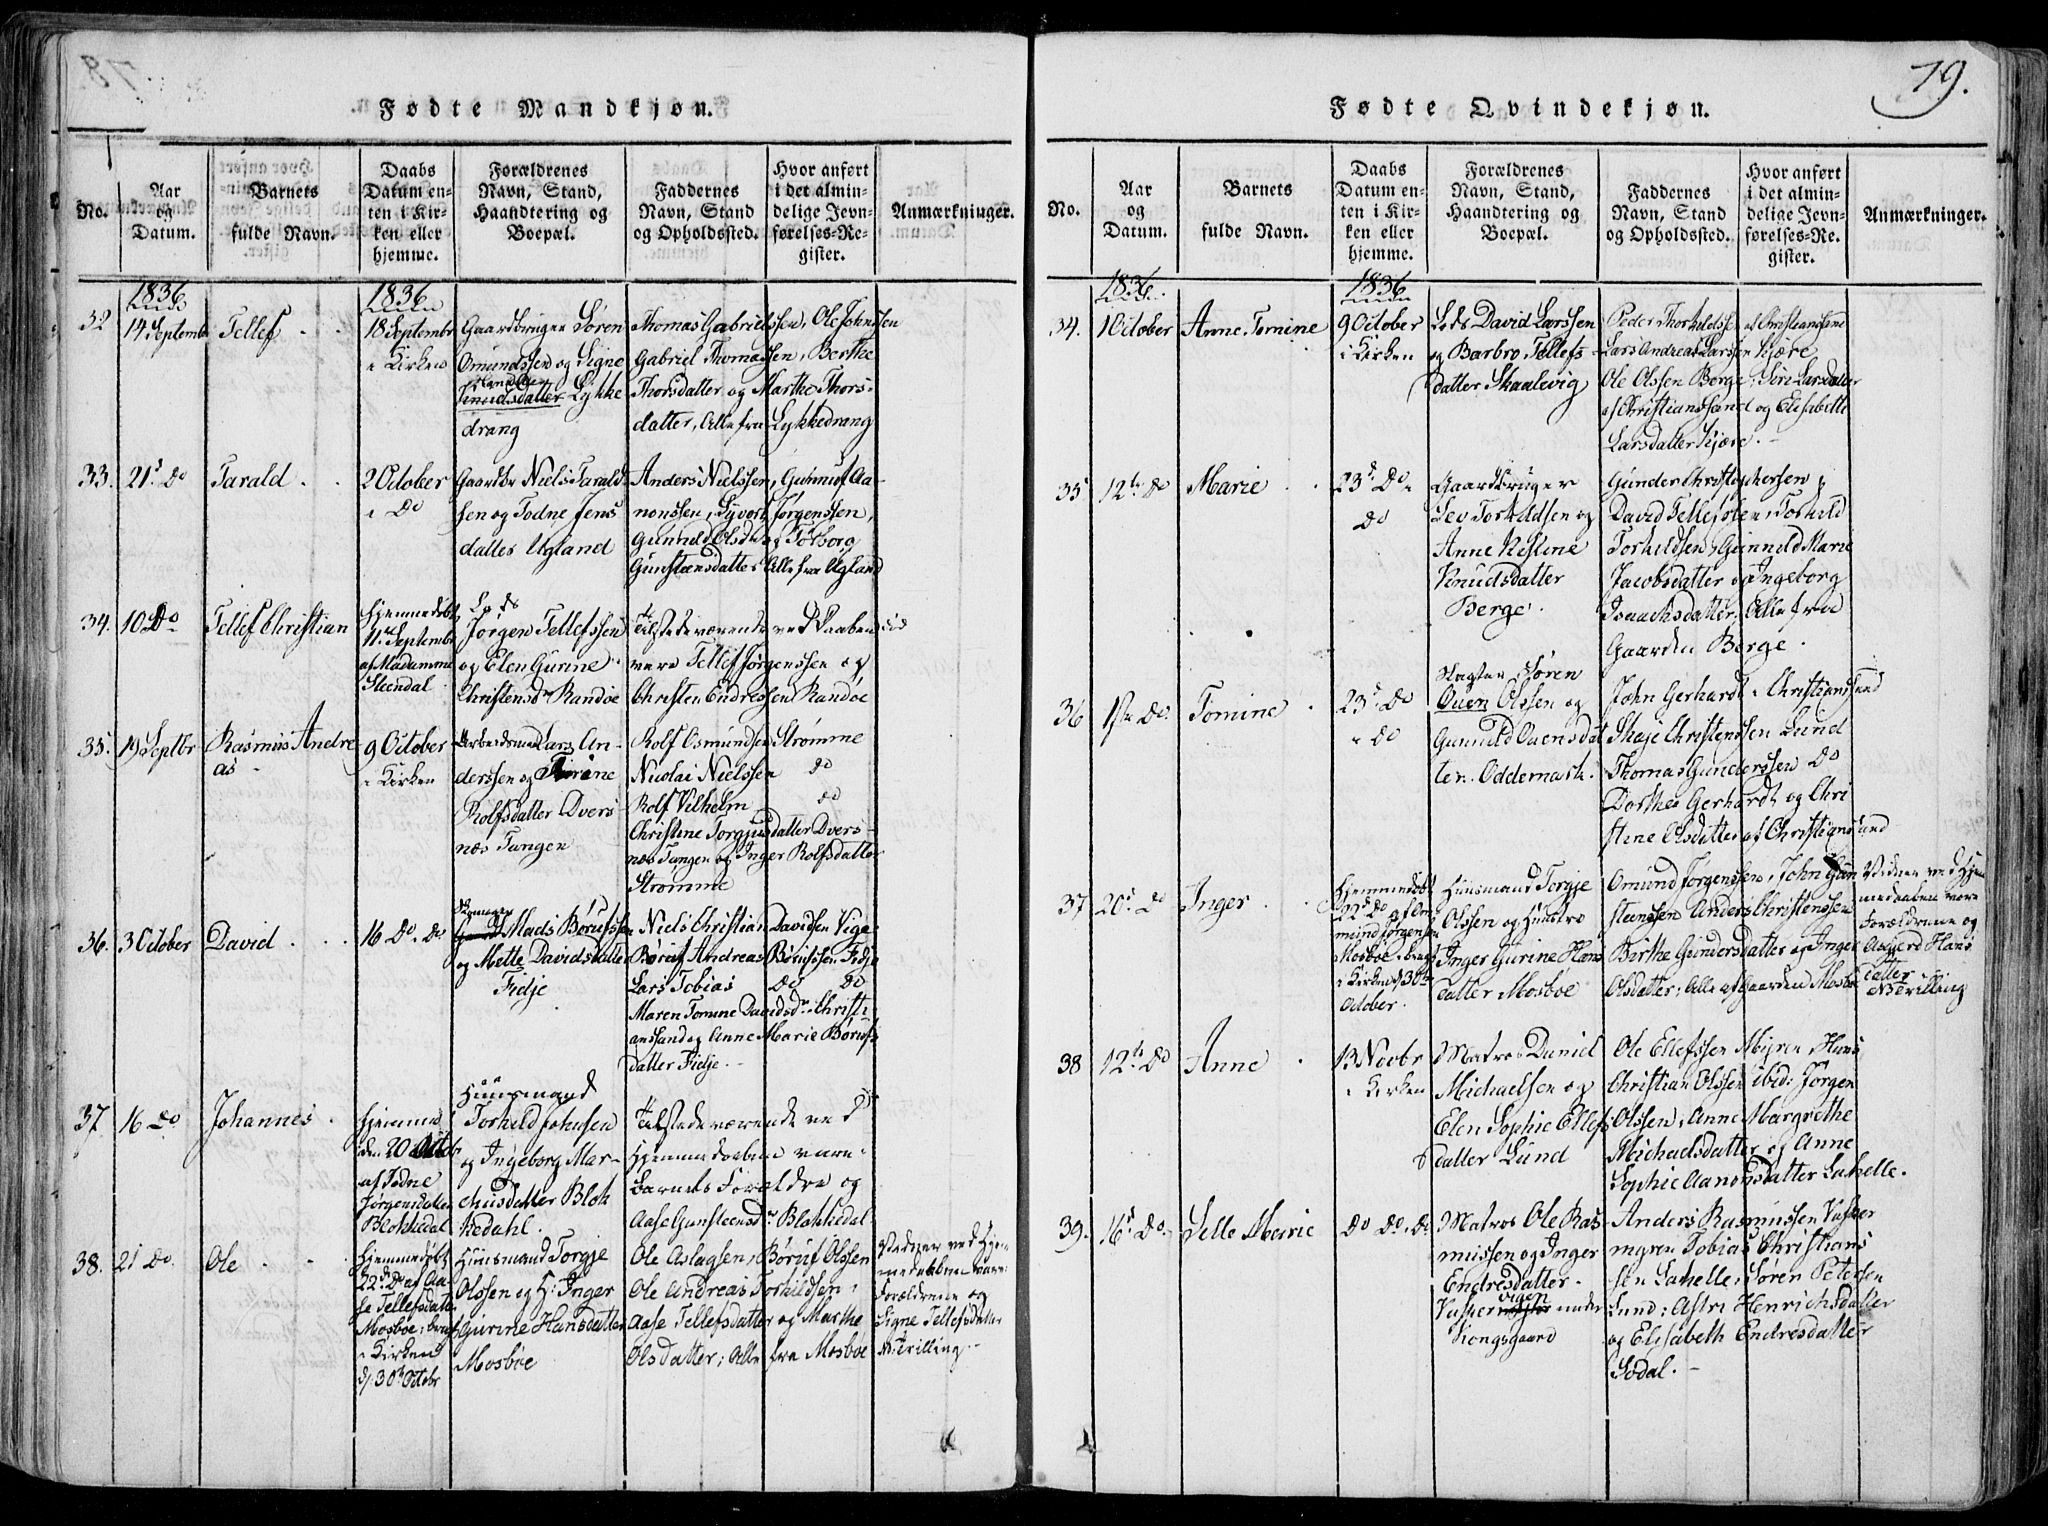 Fødte Mandkjøn.
No.
Aar
og
Datum.
Barnets
fulde Navn.
Daabs
Datum en-
ten i Kir-
ken eller
hjemme.
Forældrenes
Navn, Stand,
Haandtering og
Boepæl.
Faddernes
Navn, Stand
og Opholdssted.
Hvor anført
i det almin-
delige Jevn-
førelses-Re-
gister.
Anmærkninger.
1836
1836
32
14 Septembr
Tellef
18 Septembr
i Kirken
Gaardbruger Søren
Omundssen og Signe
Knudsdatter Lykke
drang
Thomas Gabrielssen, Ole Johnssen
Gabriel Thomassen, Berthe
Thorsdatter og Marthe Thors-
datter, Alle fra Lykkedrang
33.
21d Do
Tarald
2 October
i Do
Gaardbr Niels Tarald-
sen og Todne Jens
datter Ugland
Anders Nielssen, Gunnuf Aa-
nonssen, Syvort Jørgenssen,
Gunnild Olsd og Tolborg
Gunsteensdatter Alle fra Ugland
34.
10 Do
Tellef Christian
Hjemmedøbt
11te Septembr
af Madamme
Steendal
Lods
Jørgen Tellefssen
og Elen Gurine
Christensdr Randøe
Tilstedeværende ved Daaben
vare Tellef Jørgenssen og
Christen Endressen Randøe
35.
19 Septbr
Rasmus Andre
as
9 October
i Kirken
Arbeidsmand Lars An-
derssen og Torine
Rolfsdatter Dvers
næs Tangen
Rolf Osmundsen Strømme
Nicolai Nielssen do
Rolf Vilhelm do
Christine Torgjusdatter Dvers-
næs Tangen og Inger Rolfsdatter
Strømme
36.
3 October
David
16 Do. Do
Mads Børufssen
og Mette Davidsdatter
Fidje
Niels Christian Davidsen Vige
Børuf Andreas Børufssen Fidje
Lars Tobias Do Do
Maren Tomine Davidsdr Christi-
anssand og Anne Marie Børufs
datter Fidje.
37.
16 Do
Johannes
Hjemme
den 20 Octbr
af Todne
Jørgensdatter
Blokkedal
Huusmand
Torkild Johnsen
og Ingeborg Mar-
chusdatter Blok
kedahl.
Tilstedeværende ved
Hjemmedaaben vare
Barnets Forældre og
Aase Gunsteensdr Blokkedal
38.
21 Do.
Ole
Hjemmedøbt
22d Do af Aa-
se Tellefsdatr
Mosbøe, bragt
i Kirken
d. 30te Octbr
Huusmand Torgje
Olssen og H: Inger
Gurine Hansdatter
Mosbøe
Ole Aslagsen, Børuf Olssen
Ole Andreas Torkildsen,
Aase Tellefsdatter og Marthe
Olsdatter; Alle fra Mosbøe
Vidner ved Hjem
medaaben vare
Forældrene og
Signe Tellefsdatter
NB Trilling.
Fødte Qvindekjøn.
79.
No.
Aar
og
Datum.
Barnets
fulde Navn.
Daabs
Datum en-
ten i Kir-
ken eller
hjemme.
Forældrenes
Navn, Stand,
Haandtering og
Boepæl.
Faddernes
Navn, Stand
og Opholdssted.
Hvor anført
i det almin-
delige Jevn-
førelses-Re-
gister.
Anmærkninger.
1836
1836
34.
1 October
Anne Tomine
9 October
i Kirken
Lods David Larssen
og Barbro Tellefs-
datter Skaalevig
Peder Thorkildsen af Christianssand
Lars Andreas Larssen Kjære
Ole Olssen Berge, Siri Larsdatter
af Christianssand og Elisabeth
Larsdatter Kjære.
35
12te Do
Marie
23d Do
Do
Gaardbruger
Lev Torkildsen og
Anne Kistine
Knudsdatter
Berge.
Gunder Christophersen,
David Tellefsen, Torkild
Torkildsen, Gunnild Marie
Jacobsdatter og Ingeborg
Isaachsdatter. Alle fra
Gaarden Berge.
36
1ste Do.
Tomine
23d Do
i Do
Søren
Ouen Olssen og
Gunnild Ouensdat
ter Oddemark.
John Gerhardt i Christianssand
Skaje Christenssen Lund
Thomas Gunderssen Do
Dorthea Gerhardt og Chri
stine Olsdatter af Christianssand
37
20d Do
Inger
Hjemmedøbt
22d Do af Om
mund Jørgensen
Mosbøe, bragt
i Kirken d 30te
October.
Huusmand Torgje
Olssen og Hustro
Inger Gurine Hans
datter Mosbøe
Omund Jørgenssen, John Gun
steenssen Anders Christenssen
Birthe Gundersdatter og Inger
Olsdatter; Alle af Gaarden Mosbøe
Vidner ved Hjem
medaaben vare
Forældrene og
Asgerd Hans
datter
NB Trilling
38
12te Do
Anne
13 Novbr
i Kirken
Matros Daniel
Michaelsen og
Elen Sophie Ellefs
datter Lund
Ole Ellefssen Myren Hans
Christian Olssen ibid: Jørgen
Olssen, Anne Margrethe
Michaelsdatter og Anne
Sophie Aanonsdatter Lahelle.
39.
16d Do.
Selle Marie
Do Do. Do
Matros Ole Ras-
mussen og Inger
Endresdatter
Kongsgaard
Anders Rasmussen
myren Tobias Christians
sen Lahelle, Søren Petersen
Lund; Astri Henrichsdatter
og Elisabeth Endresdatter
Sødal.